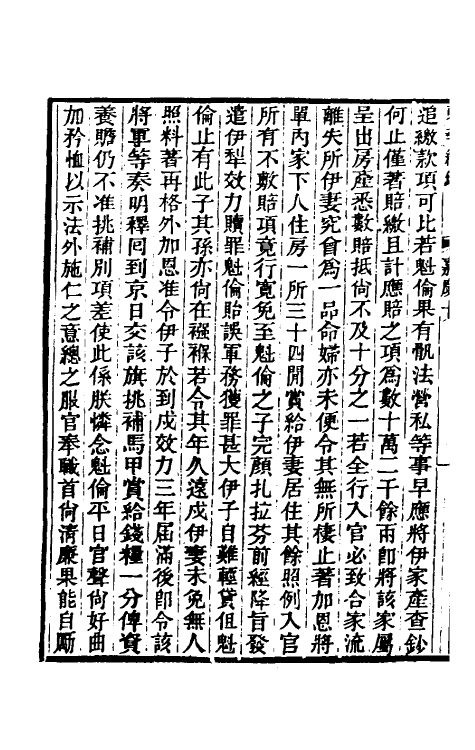 追繳款項可比若魁倫果有骫法營私等事早應將伊家產查鈔
何止僅著賠繳且計應賠之項為數十萬二千餘兩即將該家屬
呈出房產悉數賠抵尙不及十分之一若全行入官必致合家流
離失所伊妻究曾為一品命婦亦未便令其無所棲止著加恩將
單內家下人住房一所三十四閒賞給伊妻居住其餘照例入官
所有不敷賠項竟行寬免至魁倫之子完顏扎拉芬前經降旨發
遣伊犁效力贖罪魁倫貽誤軍務獲罪甚大伊子自難輕貸但魁
倫止有此子其孫亦尙在襁褓若令其年久遠戍伊妻未免無人
照料著再格外加恩准令伊子於到戍效力三年屆滿後卽令該
將軍等奏明釋囘到京日交該旗挑補馬甲賞給錢糧一分俾資
養贍仍不准挑補別項差使此係朕憐念魁倫平日官聲尙好曲
加矜恤以示法外施仁之意總之服官奉職首尙清廉果能自勵